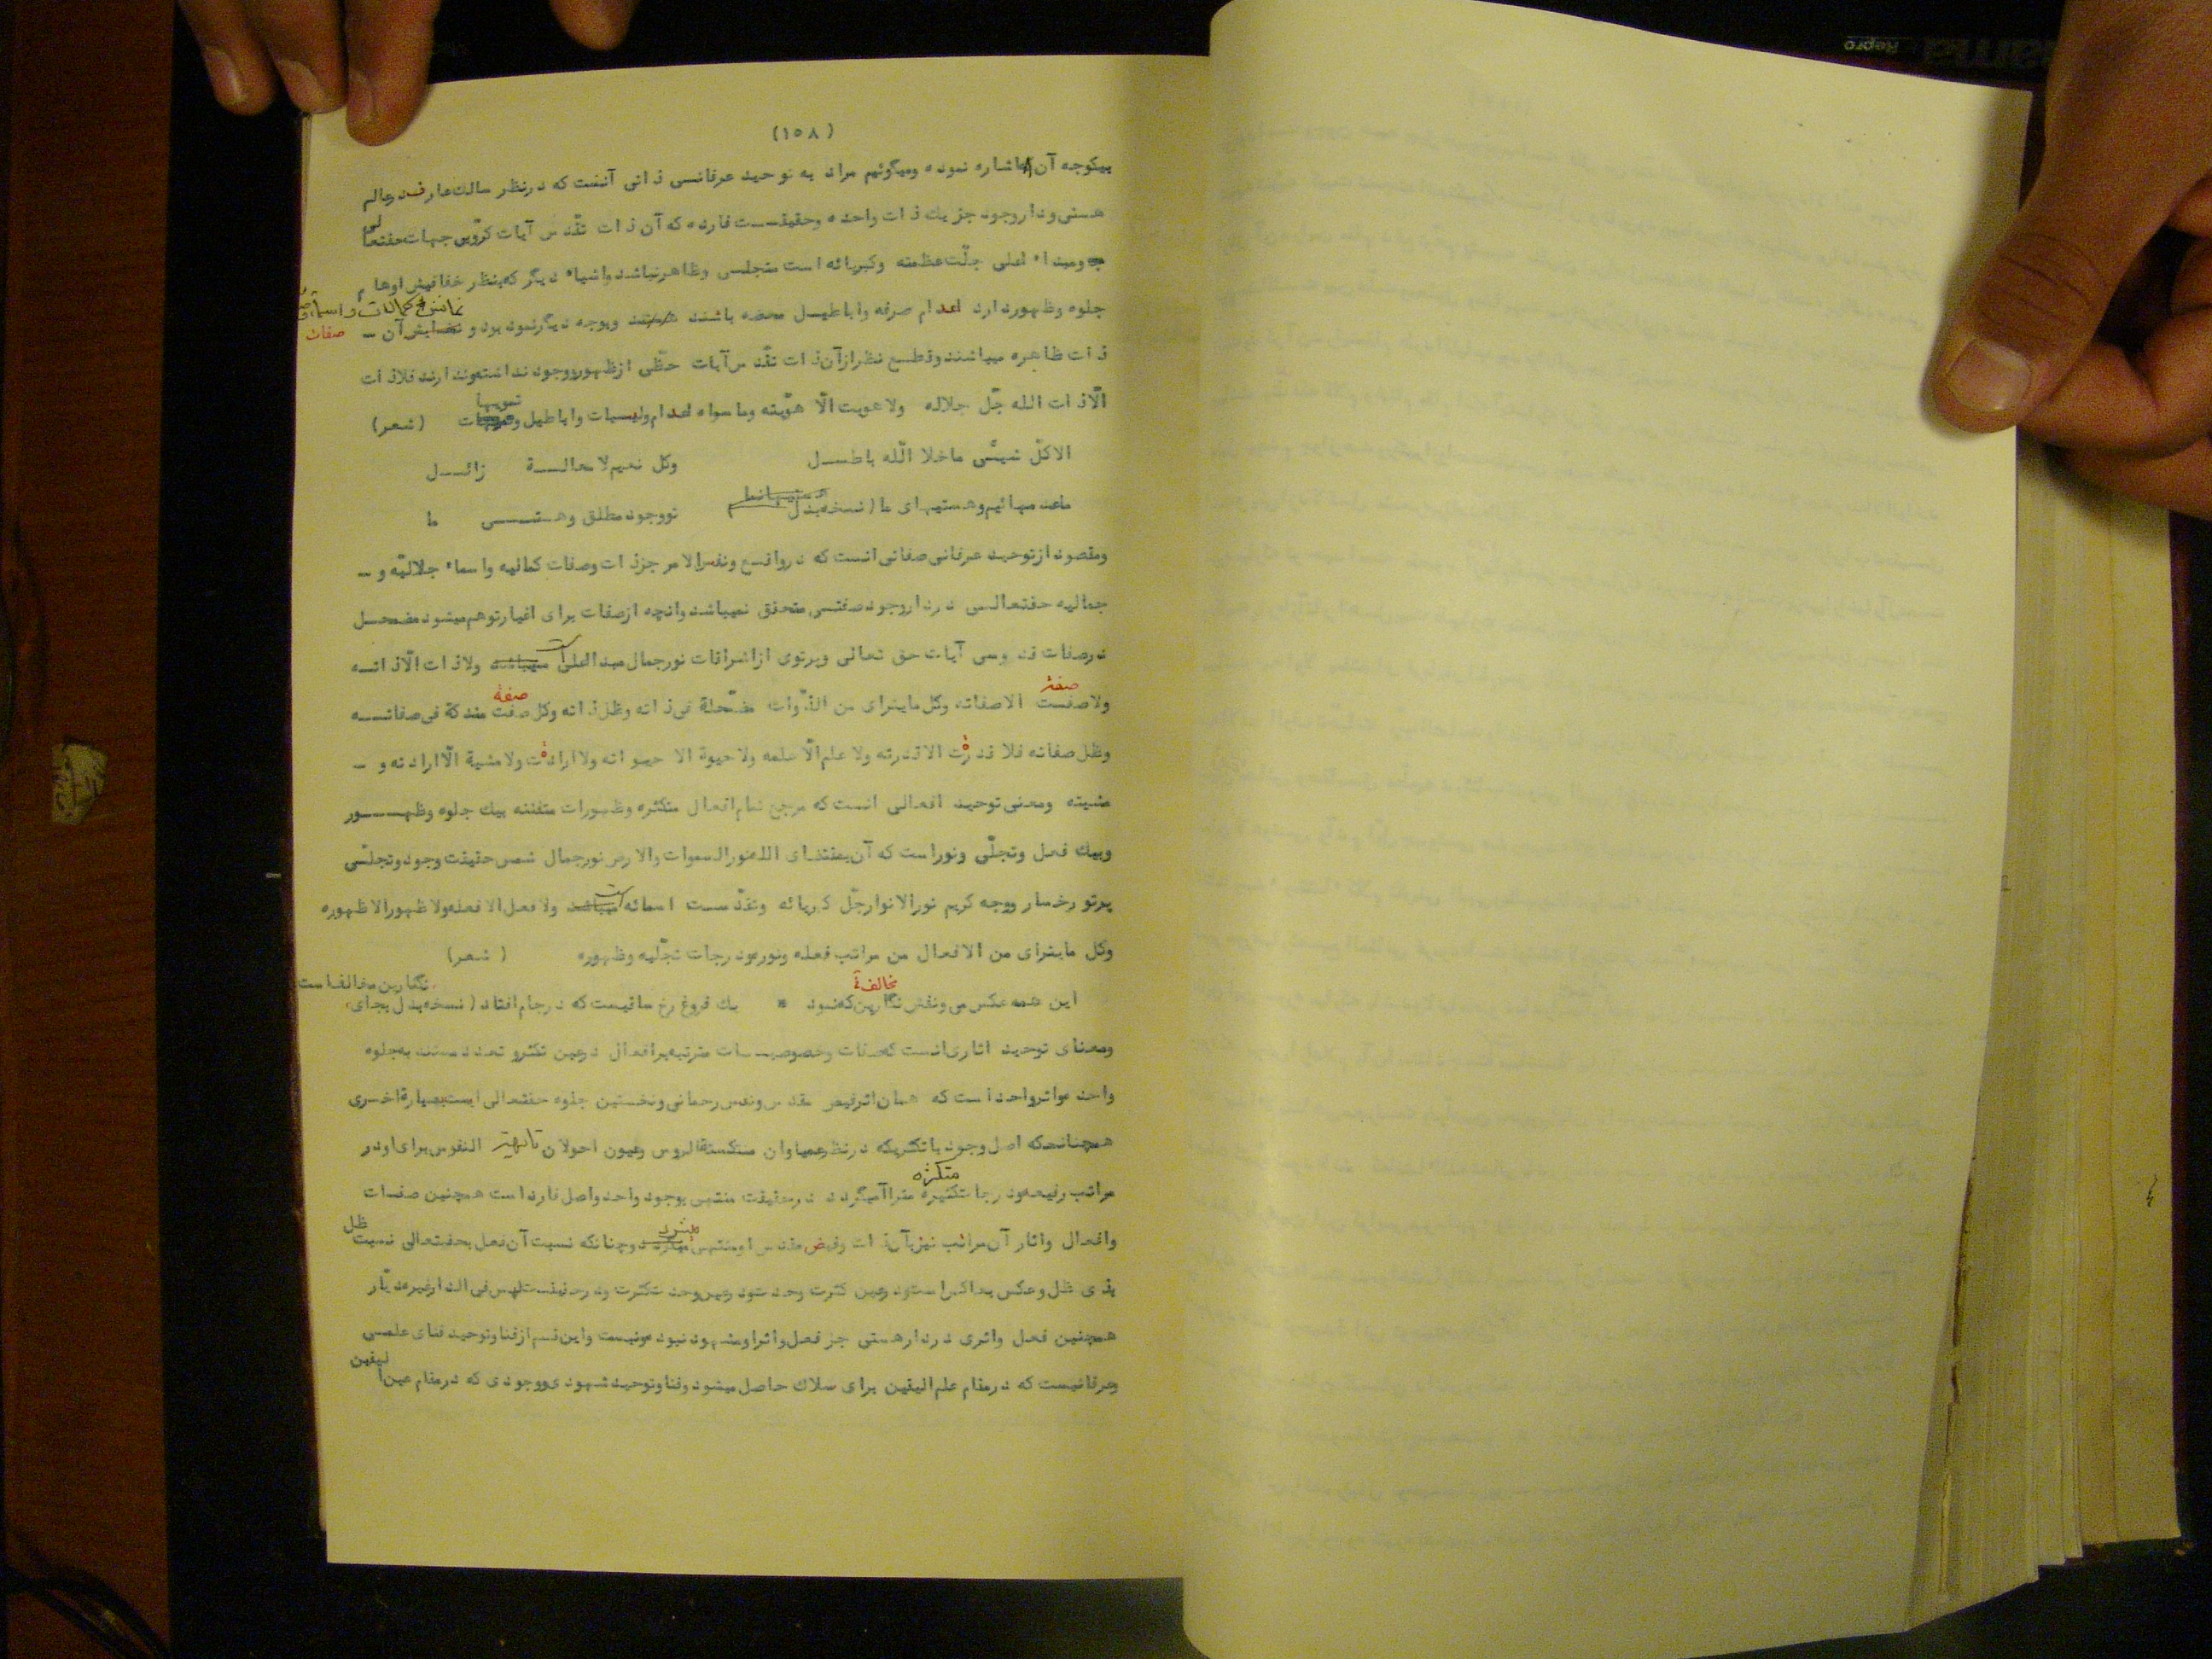 (۱۵۸)
بیکوجه آن اشاره نموده ومیگوئیم مراد به توحید عرفانسی ذاتی آنست که درنظر سالك عارف در عالم
هستی ودار وجود جز یك ذات واحده وحقیقـــت فارده که آن ذات تقدس آیات کروبی جهات حقتعالی
ومبداء اعلی جلّت عظمته وکبریائه است متجلسی وظاهر نباشد واشیاء دیگر که بنظر خفافیش اوهام
جلوه وظهور دارد اعدام صرفه واباطیـل محضه باشند هستند وبوجه دیگر نمود بود و نمایش آن ـ
نمایش کمالات و اسماء و
صفات
ذات ظاهره میباشند وقطـع نظر از آن ذات تقدس آیات حظّی از ظهور ووجود نداشته وندارند فلاذات
الّا ذات الله جلّ جلاله ولا هویت الّا هوّیته وما سواه اعدام ولیسیات واباطیل و تمویهات (شعر)
الا کلّ شیئی ماخلا الّله باطـــل وکل نعیم لا محالـــة زائـــل
ماعدمهائیم وهستیهای ما (نسخه بدل تووجود مطلق وهـــستـــی ما
هستیها نما
ومقصود از توحید عرفانی صفاتی انست که در واقـع ونفس الامر جز ذات وصفات کمالیه واسماء جلالیّه و ـ
جمالیه حقتعالـی در دار وجود صفتـی متحقق نمیباشد وانچه از صفات برای اغیار توهم میشود مضمحـل
درصفات قدوسی آیات حق تعالی وپرتوی از اشراقات نور جمال مبدا اعلی است میباشد ولاذات الّا ذاتـــه
ولا صفـت الا صفاته وکل مایترای من الذّوات مضمحلة فی ذاته وظل ذاته وکل صفت مندکة فی صفاتـــه
صفة
صفة
وظل صفاته فلا قدرت الا قدرته ولا علم الّا علمه ولا حیوة الا حیواته ولا ارادت ولا مشیة الّا ارادته و ـ
مشیته ومعنی توحید افعالی انست که مرجع تمام افعال متکثره وظهورات متفننه بیك جلوه وظهـــور
وبیك فعل وتجلّی ونور است که آن بمقتضای الله نور السموات والارض نور جمال شمس حقیقت وجود وتجلّی
پرتو رخسار ووجه کریم نور الانوار جلّ کبریائه وتقدّســت اسمائه است میباشد ولا فعل الا فعله ولا ظهور الا ظهوره
وکل مایترای من الافعال من مراتب فعله ونوره ودرجات تجلّیه وظهوره (شعر)
این همه عکس می ونقش نگارین که نمود * یك فروغ رخ ساقیست که در جام افتاد (نسخه بدل بجای
مخالف
نگارین مخالف است
ومعنای توحید اثاری انست که صفات وخصوصیـــات مترتبه بر افعال در عین تکثر و تعدد مستند به جلوه
واحد واثر واحد است که همان اثر فیض مقدس ونفس رحمانی ونخستین جلوه حقتعالی است بعبارة اخــری
همچنانکه اصل وجود با تکثریکه درنظر عمیاوان منتکسة الروس وعیون احولان النفوس برای او در
مراتب رفیعه ودرجات کثیره متراآ میگردد در حقیقت منتهی بوجود واحد واصل فارد است همچنین صفـات
متکثره
وافعال واثار آن مراتب نیز بآن ذات وفیض مقدس او منتهی میگردد وچنانکه نسبت آن فعل بحقتعالی نسبت ظل
میشود
بذی ظل وعکس بعاکس است ودر عین کثرت وحدت ودر عین وحدت کثرت ودر حقیقت لیس فی الدار غیره دیّار
همچنین فعل واثری در دار هستی جز فعل واثر او مشهود نبوده ونیست واین قسم از فنا وتوحید فنای علمــی
وعرفانیست که در مقام علم الیقین برای سلاك حاصل میشود وفنا وتوحید شهودی ووجودی که در مقام عین الیقین